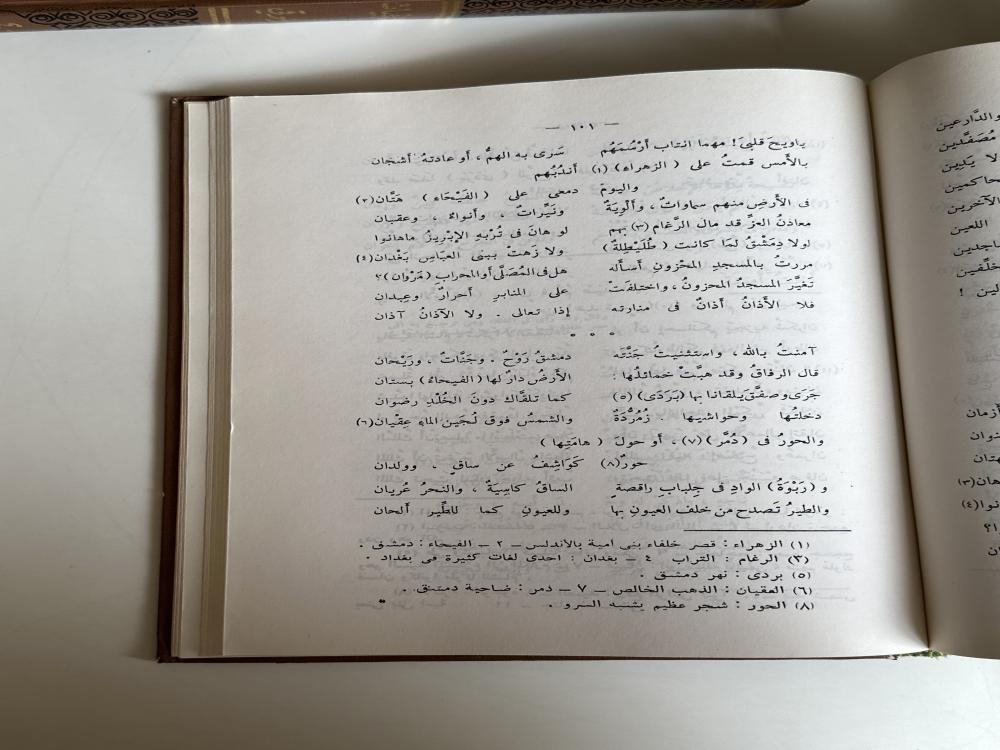 — ١٠١ —
ياويحَ قلبىَ! مهما انتاب أَرْسُمَهُم سَرَى به الهمُّ، أو عادتهُ أشجان
بالأمس قمتُ على (الزهراء) (١) أندُبُهم
واليومَ دمعى على (الفَيْحَاء) هَتَّان (٢)
فى الأرضِ منهم سماواتٌ، وألْوِيَةٌ ونَيِّراتٌ، وأنواءٌ وعقبان
معادنُ العزِّ قد مالَ الرَّغام (٣) بهم لو هانَ فى تُرْبِهِ الإِبْرِيزُ ماهانوا
لولا دِمَشْقُ لمَا كانت (طُلَيْطِلةٌ) ولا زَهتْ ببنى العباسِ بَغْدان (٤)
مررتُ بالمسجدِ المحْزونِ أسأله هل فى المُصَلَّى أو المحرابِ (مَرْوَان)؟
تَغيَّرَ المسجدُ المحزونُ، واختلفَتْ على المنابرِ أحرارٌ وعبدان
فلا الأَذانُ أذانٌ فى منارته إذا تعالى. ولا الآذانُ آذان
* * *
آمنتُ بالله، واستثنيتُ جَنَّتَه دمشقُ رَوْحٌ. وجَنَّاتٌ، ورَيْحان
قال الرفاقُ وقد هبَّتْ خمائلُها: الأرضُ دارٌ لها (الفيحاءُ) بستان
جَرَى وصفَّقَ يلقانا بها (بَرَدَى) (٥) كما تلقَّاك دونَ الخُلْدِ رضوان
دخلتُها وحواشِيها. زُمُرُّدَةٌ والشمسُ فوق لُجَينِ الماءِ عِقْيان (٦)
والحورُ فى (دُمَّر) (٧)، أو حولَ (هامَتِها)
حورٌ (٨) كَوَاشِفُ عن ساقٍ، وولدان
و (رَبْوَةُ) الوادِ فى جِلبابِ راقصةٍ الساقُ كاسِيَةٌ، والنحرُ عُريان
والطيرُ تَصدح من خلفَ العيونِ بها وللعيونِ كما للطَّيرِ ألحان
(١) الزهراء: قصر خلفاء بنى أمية بالأندلس – ٢ – الفيحاء: دمشق.
(٣) الرغام: التراب ٤ – بغدان: احدى لغات كثيرة فى بغداد.
(٥) بردى: نهر دمشق.
(٦) العقيان: الذهب الخالص – ٧ – دمر: ضاحية دمشق.
(٨) الحور: شجر عظيم يشبه السرو.
والدَّارعين
مُصَفَّدين
لا يَدِين
اللعين
أزمان